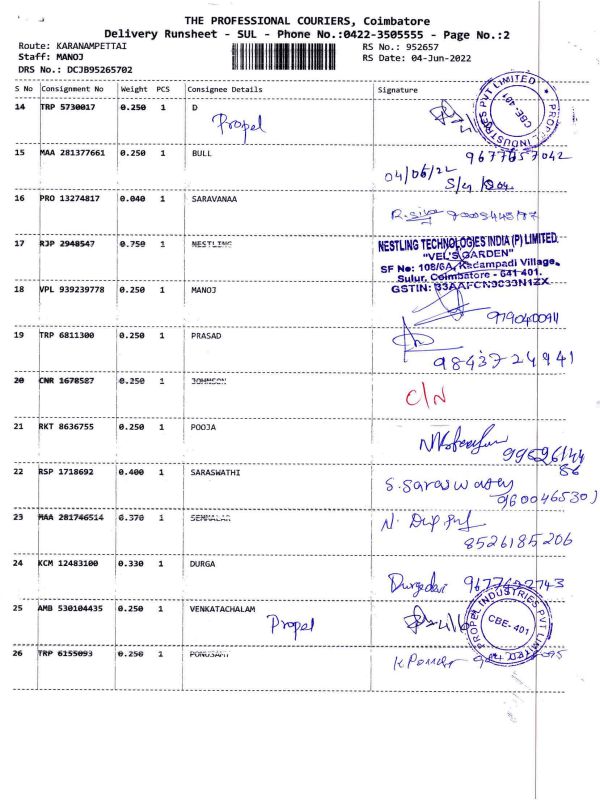 THE PROFESSIONAL COURIERS, Coimbatore
Delivery Runsheet - SUL - Phone No.:0422-3505555 - Page No.:2
Route: KARANAMPETTAI
Staff: MANOJ
DRS No.: DCJB95265702
RS No.: 952657
RS Date: 04-Jun-2022
S No Consignment No Weight PCS Consignee Details Signature
14 TRP 5730017 0.250 1 D
Propel
PROPEL INDUSTRIES PVT LIMITED
CBE-401
15 MAA 281377661 0.250 1 BULL
9677657042
04/06/22
16 PRO 13274817 0.040 1 SARAVANAA
17 RJP 2948547 0.750 1 NESTLING
NESTLING TECHNOLOGIES INDIA (P) LIMITED.
"VEL'S GARDEN"
SF No: 108/6A, Kadampadi Village,
Sulur, Coimbatore - 641 401.
18 VPL 939239778 0.250 1 MANOJ
19 TRP 6811300 0.250 1 PRASAD
9843724941
20 CNR 1678587 0.250 1 JOHNSON
C/N
21 RKT 8636755 0.250 1 POOJA
22 RSP 1718692 0.400 1 SARASWATHI
S. Saraswathy
9600465301
23 MAA 281746514 0.370 1 SEMMALAR
8526185206
24 KCM 12483100 0.330 1 DURGA
Durgadevi 9677622743
25 AMB 530104435 0.250 1 VENKATACHALAM
Propel
PROPEL INDUSTRIES PVT LIMITED
CBE-401
26 TRP 6155093 0.250 1 PONUSAMY